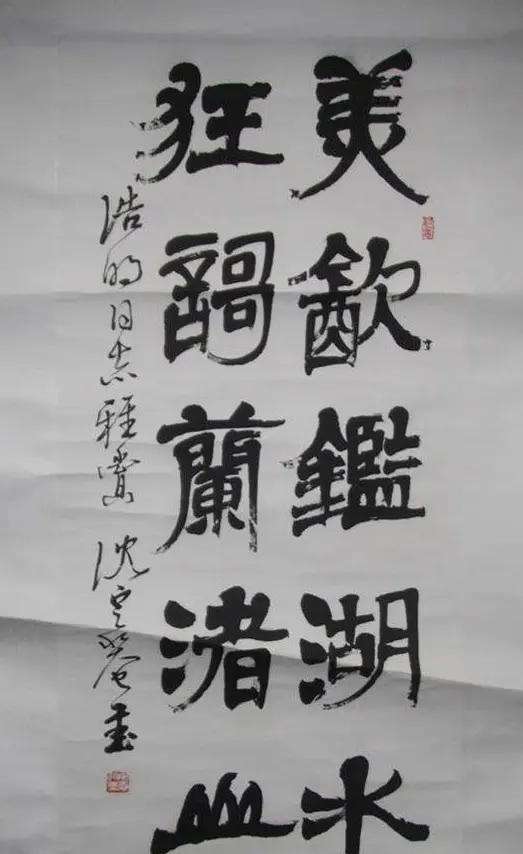 美㱃鑑湖水
狂謌蘭渚山
浩明同志雅賞 沈定庵書